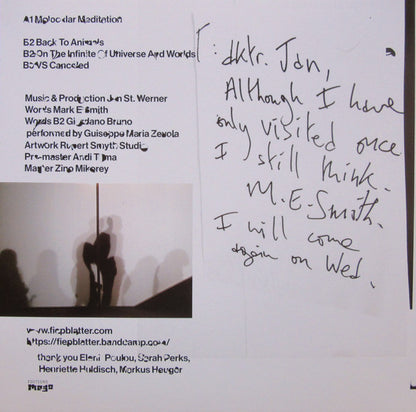 A1 Molocular Meditation
B2 Back To Animals
B2 On The Infinite Of Universe And Worlds
B3 VS Canceled
Music & Production Jan St. Werner
Words Mark E Smith
Words B2 Giordano Bruno
performed by Guiseppe Maria Zevola
Artwork Rupert Smyth Studio
Pre-master Andi Toma
Master Zino Mikorey
[: dktr. Jan,
Although I have
only visited once
I still think.
M.E.Smith.
I will come
again on Wed.
www.fiepblatter.com
https://fiepblatter.bandcamp.com/
thank you Eleni Poulou, Sarah Perks,
Henriette Huldisch, Markus Heuger
EDITIONS
Mego